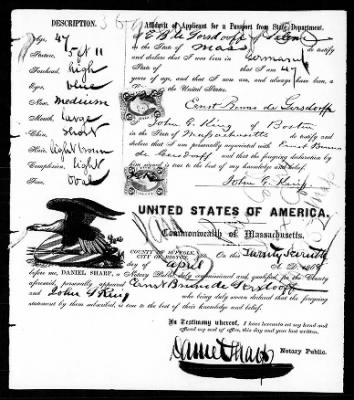 DESCRIPTION.
Affidavit of Applicant for a Passport from State Department.
Age, 47
I E B de Gersdorff of Salem
Stature, 5 ft 11
in the State of Mass do testify
Forehead, high
and declare that I was born in Germany
Eyes, blue
State of that I am 47
Nose, medium
years of age, and that I am, and always have
Mouth, large
the United States.
Chin, short
Ernst Bruno de Gersdorff
Hair, light brown
John G. King of Boston
Complexion, light
in the State of Massachusetts do testify and
Face, oval
declare that I am personally acquainted with Ernst Bruno
de Gersdorff and the foregoing declaration by
him signed is true to the best of my knowledge and belief.
John G. King
UNITED STATES OF AMERICA.
Commonwealth of Massachusetts.
COUNTY OF SUFFOLK,
CITY OF BOSTON
On this Twenty Seventh
day of April A. D. 186
before me, DANIEL SHARP, a Notary Public duly commissioned and qualified, in the County
aforesaid, personally appeared Ernst Bruno de Gersdorff
and John G King who being duly sworn declared that the foregoing
statement by them subscribed, is true to the best of their knowledge and belief.
In Testimony whereof, I have hereunto set my hand and
affixed my seal of office, this day and year above written.
Daniel Sharp
Notary Public.